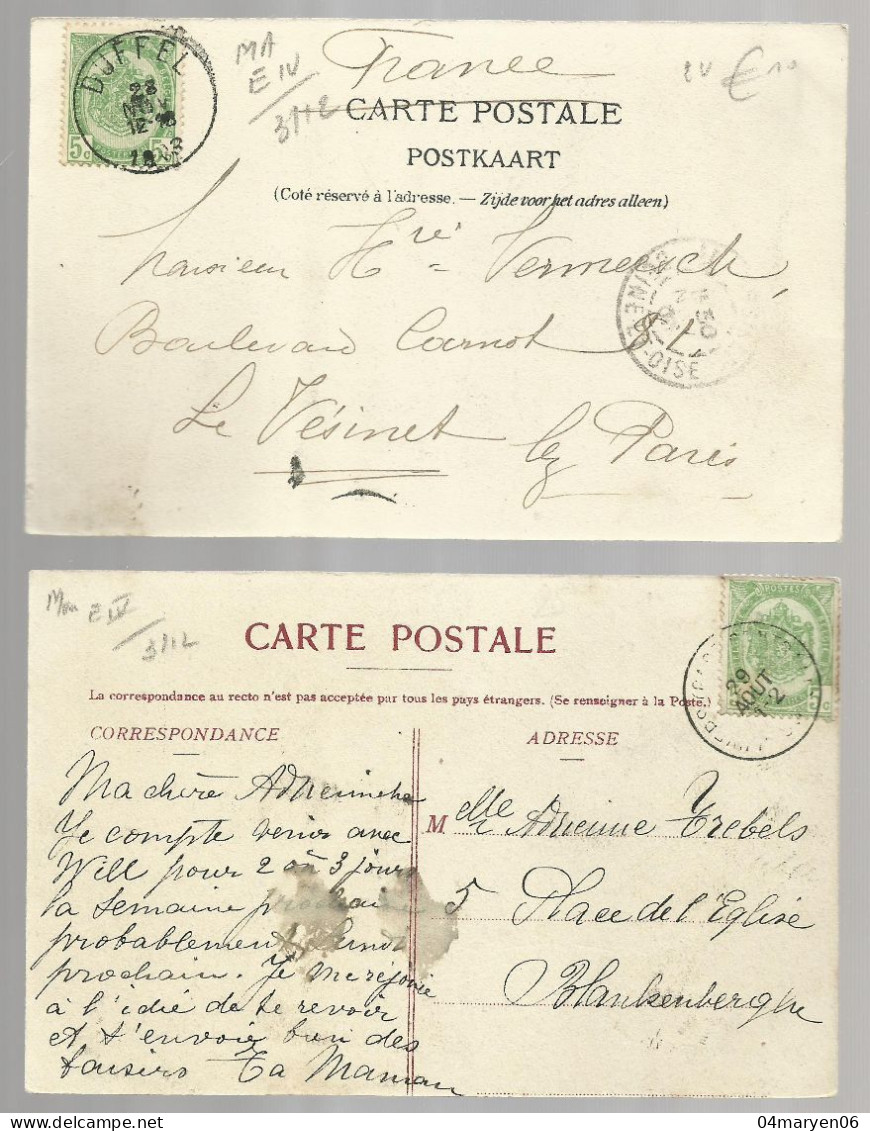 DUFFEL
23
NOV
12-
5c
MA
E IV
3/12
€ 10
France
CARTE POSTALE
POSTKAART
(Coté réservé à l'adresse. — Zijde voor het adres alleen)
Monsieur Hre = Vermeersch
Boulevard Carnot 81
Le Vésinet lez Paris
SEINE-ET-OISE
E IV
3/12
CARTE POSTALE
POSTES
29
AOUT
La correspondance au recto n'est pas acceptée par tous les pays étrangers. (Se renseigner à la Poste.)
CORRESPONDANCE
ADRESSE
Ma chère Adrienneke
Je compte venir avec
Will pour 2 où 3 jours
la semaine prochaine
probablement lundi
prochain. Je me réjouie
à l'idié de te revoir
et t'envoie bien des
baisers Ta Maman
Melle Adrienne Trebels
5 Place de l'Eglise
Blankenberghe
© 04maryen06
www.delcampe.net